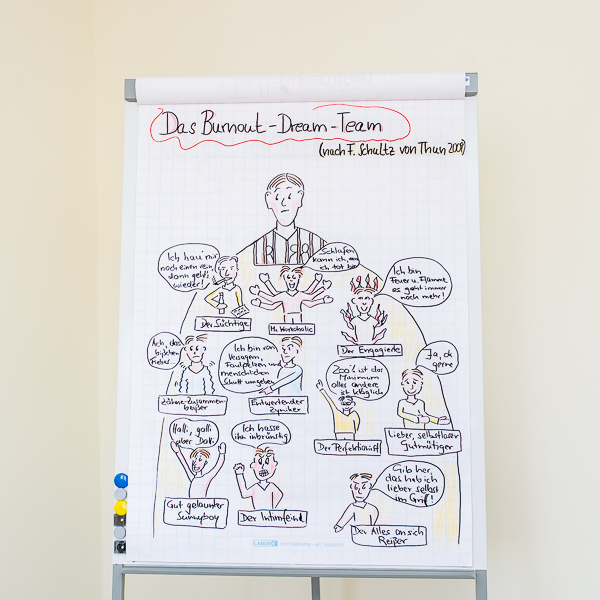 Das Burnout-Dream-Team
(nach F. Schultz von Thun 2008)
Ich hau' mir
noch einen rein,
dann geht's
wieder!
Der Süchtige
Schlafen
kann ich, wenn
ich tot bin
Mr Workoholic
Ich bin
Feuer u. Flamme
es geht immer
noch mehr!
Der Engagierte
Ach, das
bißchen
Fieber
Zähne-zusammen-
beißer
Ich bin von
Versagern,
Faulpelzen und
menschlichem
Schutt umgeben
Entwertender
Zyniker
200% ist das
Minimum
alles andere
ist kläglich
Der Perfektionist
Ja, ok
gerne
Lieber, selbstloser
Gutmütiger
Halli, galli
aber Dalli
Gut gelaunter
Sunnyboy
Ich hasse
ihn inbrünstig
Der Intimfeind
Gib her,
das hab ich
lieber selbst
im Griff!
Der Alles an sich
Reißer